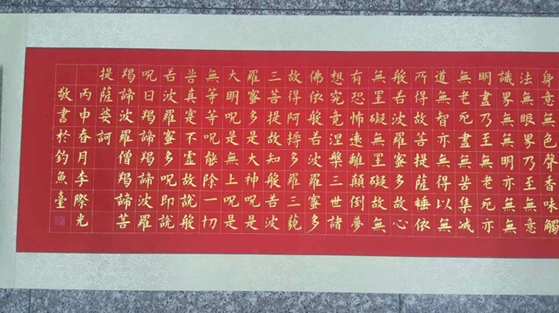 身意無色聲香味觸
法無眼界乃至無意
識界無無明亦無無
明盡乃至無老死亦
無老死盡無苦集滅
道無智亦無得以無
所得故菩提薩埵依
般若波羅蜜多故心
無罣礙無罣礙故無
有恐怖遠離顛倒夢
想究竟涅槃三世諸
佛依般若波羅蜜多
故得阿耨多羅三藐
三菩提故知般若波
羅蜜多是大神呪是
大明呪是無上呪是
無等等呪能除一切
苦真實不虛故說般
若波羅蜜多呪即說
呪曰羯諦羯諦波羅
羯諦波羅僧羯諦菩
提薩婆訶
丙申春月李際光
敬書於釣魚臺